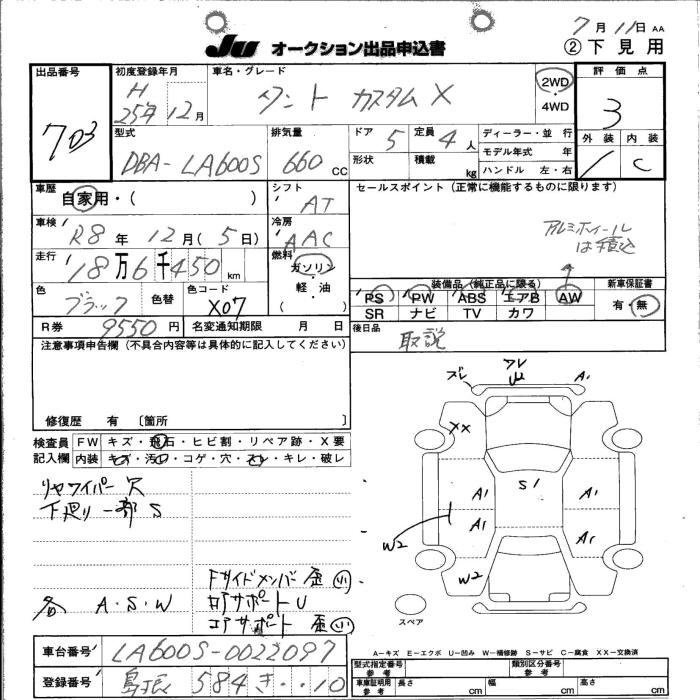 7月11日 AA
JU オークション出品申込書
② 下見用
出品番号
703
初度登録年月
H 25年 12月
車名・グレード
タント カスタム X
2WD
・
4WD
評価点
3
外装 内装
C
型式
DBA-LA600S
排気量
660 CC
ドア 5
定員 4 人
形状
積載 kg
ディーラー・並 行
モデル年式 年
ハンドル 左・右
車歴
自家用・( )
シフト
AT
セールスポイント(正常に機能するものに限ります)
アルミホイール
は積込
車検
R8年 12月(5日)
冷房
AAC
走行
18万6千450km
燃料
ガソリン
・
軽・油
( )
装備品(純正品に限る)
PS PW ABS エアB AW
SR ナビ TV カワ
新車保証書
有・無
色
ブラック
色替
色コード
X07
R券 9550円
名変通知期限 月 日
後日品
取説
注意事項申告欄(不具合内容等は具体的に記入してください)
修復歴 有 [箇所 ]
検査員
記入欄
FW キズ・飛石・ヒビ割・リペア跡・X要
内装 キズ・汚れ・コゲ・穴・スレ・キレ・破レ
リヤワイパー穴
下廻り一部S
Fサイドメンバー歪小
各 A・S・W
コアサポートU
コアサポート歪小
ズレ
ズレ
U
A1
XX
S1
A1
A1
A1
A1
W2
W2
スペア
A-キズ E-エクボ U-凹み W-補修跡 S-サビ C-腐食 XX-交換済
車台番号
LA600S-0022097
登録番号
584 き ・・10
型式指定番号
参考
類別区分番号
参考
車庫証明用
参考
長さ cm
幅 cm
高さ cm